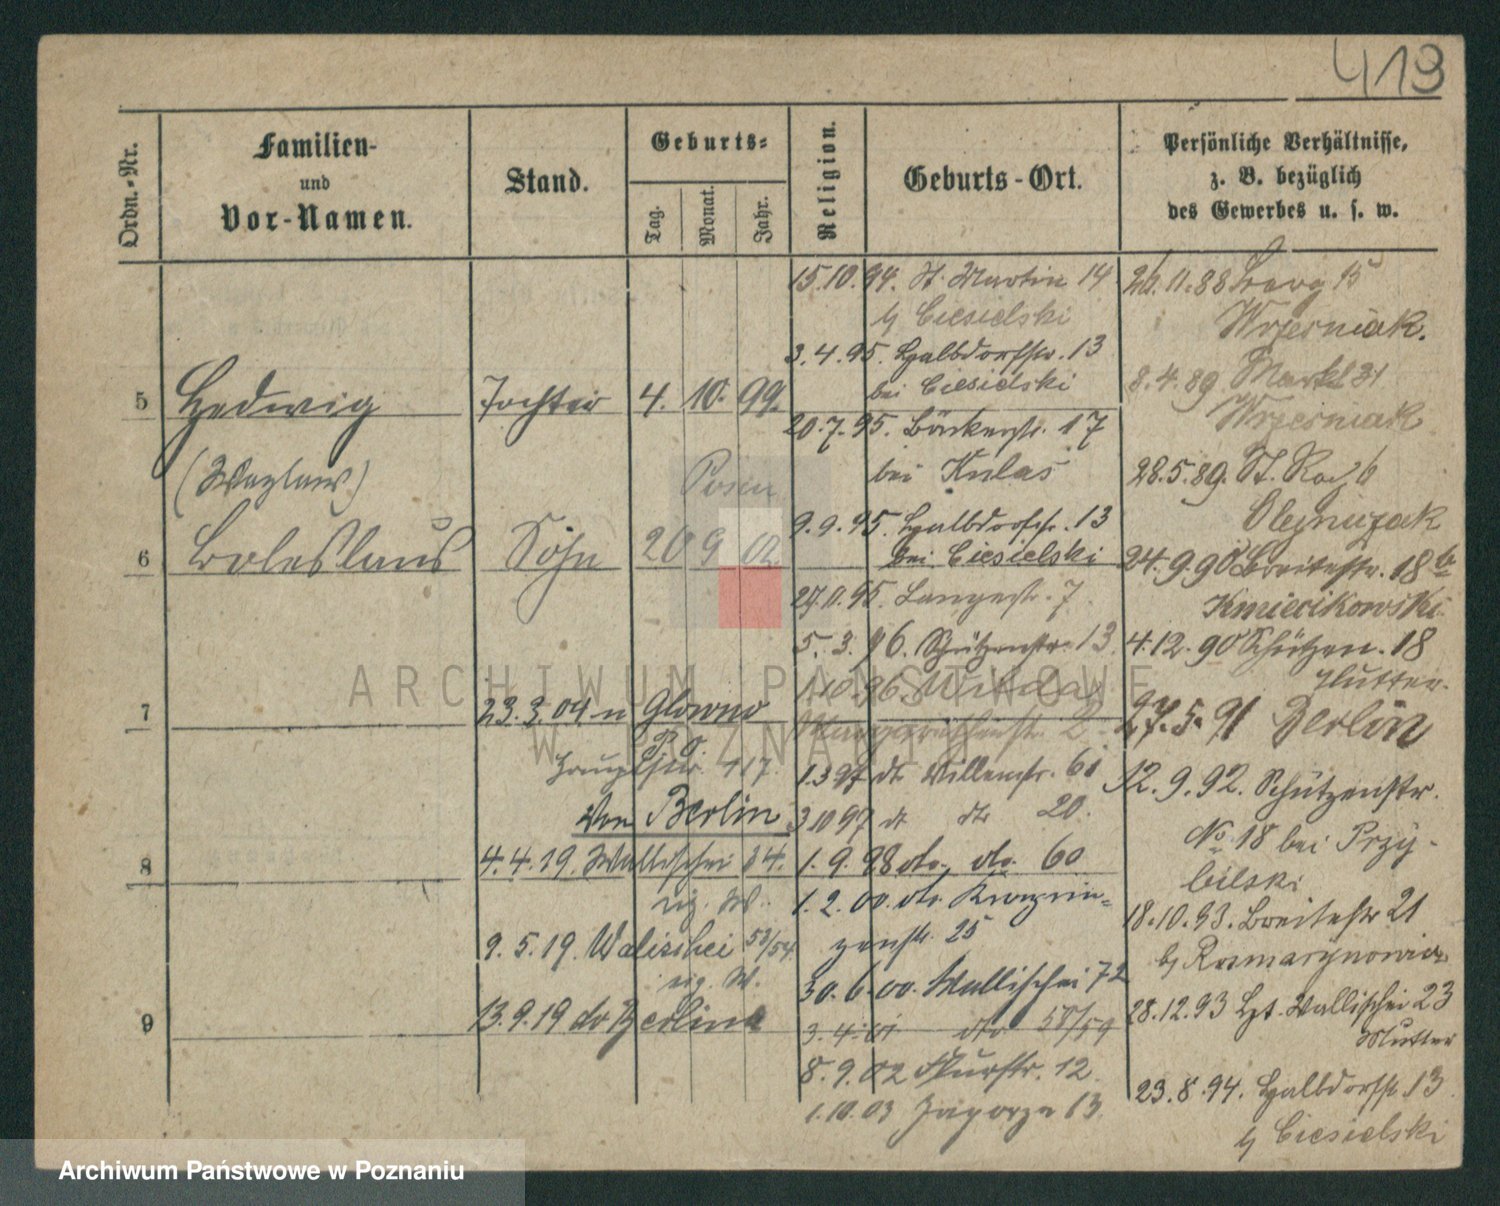 413
Ordn.-Nr.
Familien-
und
Vor-Namen.
Stand.
Geburts-
Tag.
Monat.
Jahr.
Religion.
Geburts-Ort.
Persönliche Verhältnisse,
z. B. bezüglich
des Gewerbes u. s. w.
5 Hedwig Tochter 4. 10. 99.
(Wazlaw)
Posen
6 Boleslaus Sohn 20 9 02.
7
23.3.04 n Glowno
P. O.
117.
Von Berlin
8
4.4.19. Wallischei 34.
9.5.19. Walischei 53/54
9
13.9.19 do Berlin
15.10.94. St. Martin 14
b/ Ciesielski
3.4.95. Halbdorfstr. 13
bei Ciesielski
20.7.95. Bäckerstr. 17
bei Kulas
9.9.95. Halbdorfstr. 13
bei Ciesielski
27.11.95. Langestr. 7
5.3.96. Schützenstr. 13.
1.10.96. Wilda
Margarethenstr. 2.
1.3 97 dto Villenstr. 61
3 10 97 dt dto 20.
1.9.98 dto. dto. 60
1.2.00. dto Kronprin=
zenstr. 25
30.6.00. Wallischei 72
3.4.01 dto 58/59
8.9.02 Flurstr. 12.
1.10.03 Zagorze 13.
24.11.88 15
Wrzesniak.
8.4.89 Markt 31
Wrzesniak
28.5.89. St. Roch 6
Olejniczak
24.9.90 Breitestr. 18 b
Kmiecikowski.
4.12.90 Schützen. 18
Mutter.
27.5.91 Berlin
12.9.92. Schützenstr.
No 18 bei Przy-
bilski
18.10.93. Breitestr 21
b/ Romarynowicz
28.12.93 Hpt. Wallischei 23
Mutter
23.8.94. Halbdorfstr. 13
b/ Ciesielski
ARCHIWUM PAŃSTWOWE
W POZNANIU
Archiwum Państwowe w Poznaniu